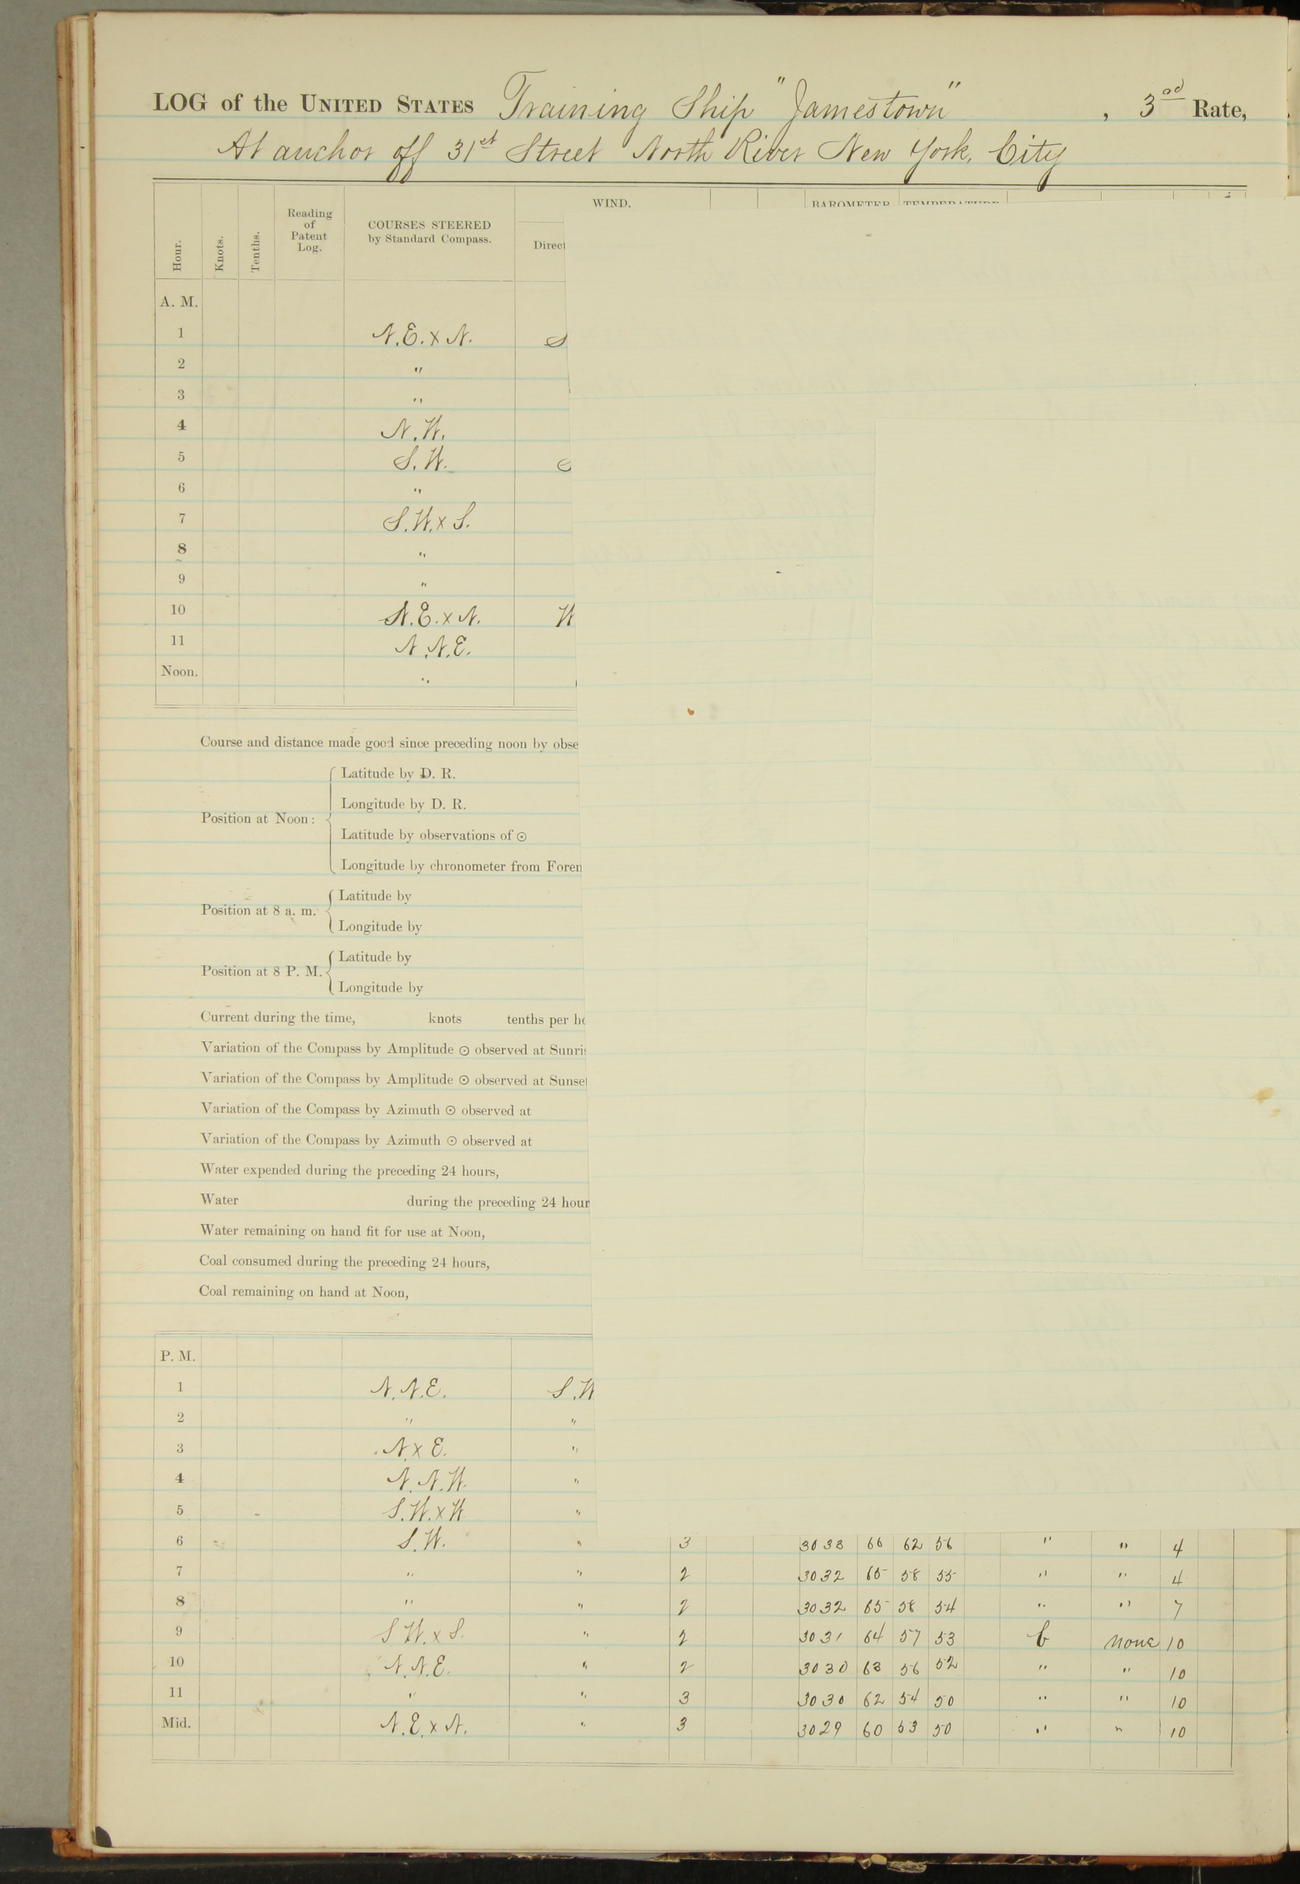 LOG of the UNITED STATES Training Ship "Jamestown", 3rd Rate,
At anchor off 31st Street North River New York, City
WIND.
BAROMETER TEMPERATURE
Hour. Knots. Tenths. Reading of Patent Log. COURSES STEERED by Standard Compass. Direct
A. M.
1 N.E. x N. S
2 "
3 "
4 N.W.
5 S.W.
6 "
7 S.W. x S.
8 "
9 "
10 N.E. x N. W
11 N.N.E.
Noon. "
Course and distance made good since preceding noon by obse
Position at Noon:
Latitude by D. R.
Longitude by D. R.
Latitude by observations of ⊙
Longitude by chronometer from Foren
Position at 8 a. m.
Latitude by
Longitude by
Position at 8 P. M.
Latitude by
Longitude by
Current during the time, knots tenths per ho
Variation of the Compass by Amplitude ⊙ observed at Sunri
Variation of the Compass by Amplitude ⊙ observed at Sunse
Variation of the Compass by Azimuth ⊙ observed at
Variation of the Compass by Azimuth ⊙ observed at
Water expended during the preceding 24 hours,
Water during the preceding 24 hour
Water remaining on hand fit for use at Noon,
Coal consumed during the preceding 24 hours,
Coal remaining on hand at Noon,
P. M.
1 N.N.E. S.W
2 " "
3 N x E. "
4 N.N.W. "
5 S.W. x W "
6 S.W. " 3 3033 66 62 56 " " 4
7 " " 2 3032 65 58 55 " " 4
8 " " 2 3032 65 58 54 " " 7
9 S.W. x S. " 2 3031 64 57 53 b none 10
10 N.N.E. " 2 3030 63 56 52 " " 10
11 " " 3 3030 62 54 50 " " 10
Mid. N.E. x N. " 3 3029 60 53 50 " " 10